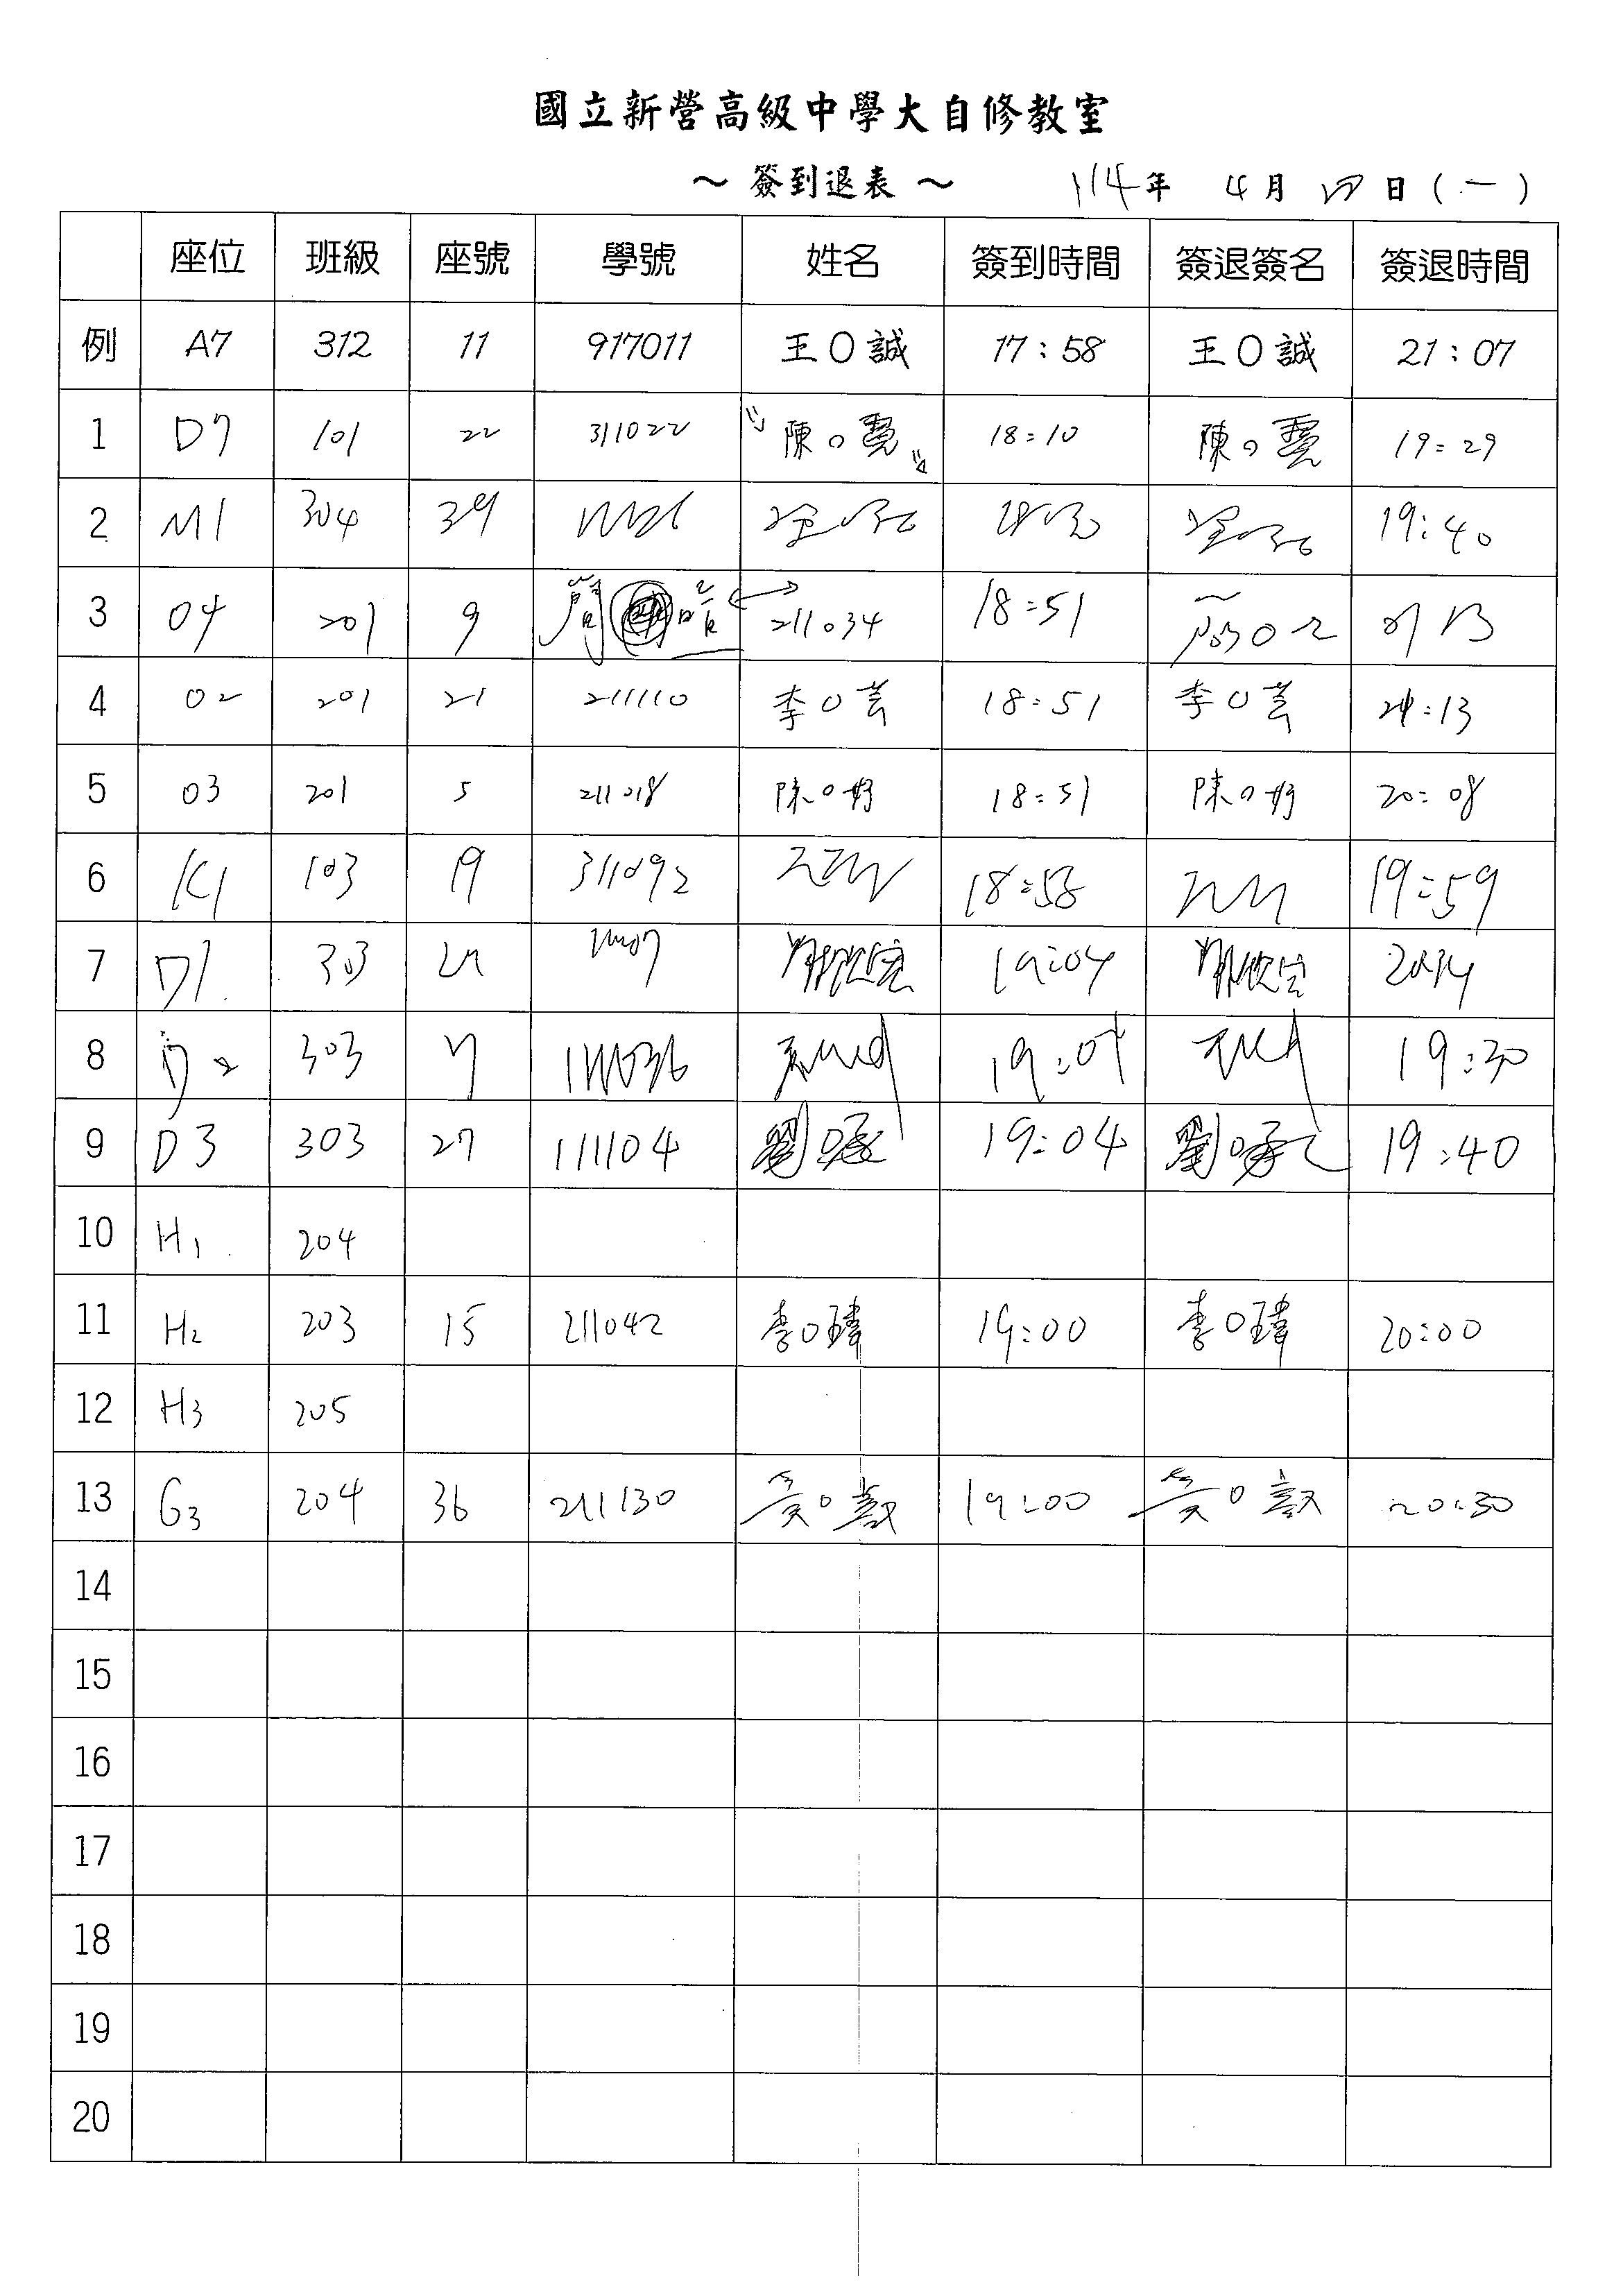 國立新營高級中學大自修教室
～ 簽到退表 ～ 114年 4月 日(一)
座位 班級 座號 學號 姓名 簽到時間 簽退簽名 簽退時間
例 A7 312 11 917011 王O誠 17:58 王O誠 21:07
1 D7 101 22 311022 陳O霓 18:10 陳O霓 19:29
2 M1 304 39 19:40
3 04 201 9 簡 211034 18:51
4 02 201 21 211110 李O芸 18:51 李O芸 21:13
5 03 201 5 211018 陳O妤 18:51 陳O妤 20:08
6 K1 103 19 311092 18:58 19:59
7 D1 303 19:04
8 D2 303 7 19:04 19:30
9 D3 303 27 111104 劉O承 19:04 劉O承 19:40
10 H1 204
11 H2 203 15 211042 李O瑋 19:00 李O瑋 20:00
12 H3 205
13 G3 204 36 211130 黃O 19:00 黃O 20:30
14
15
16
17
18
19
20